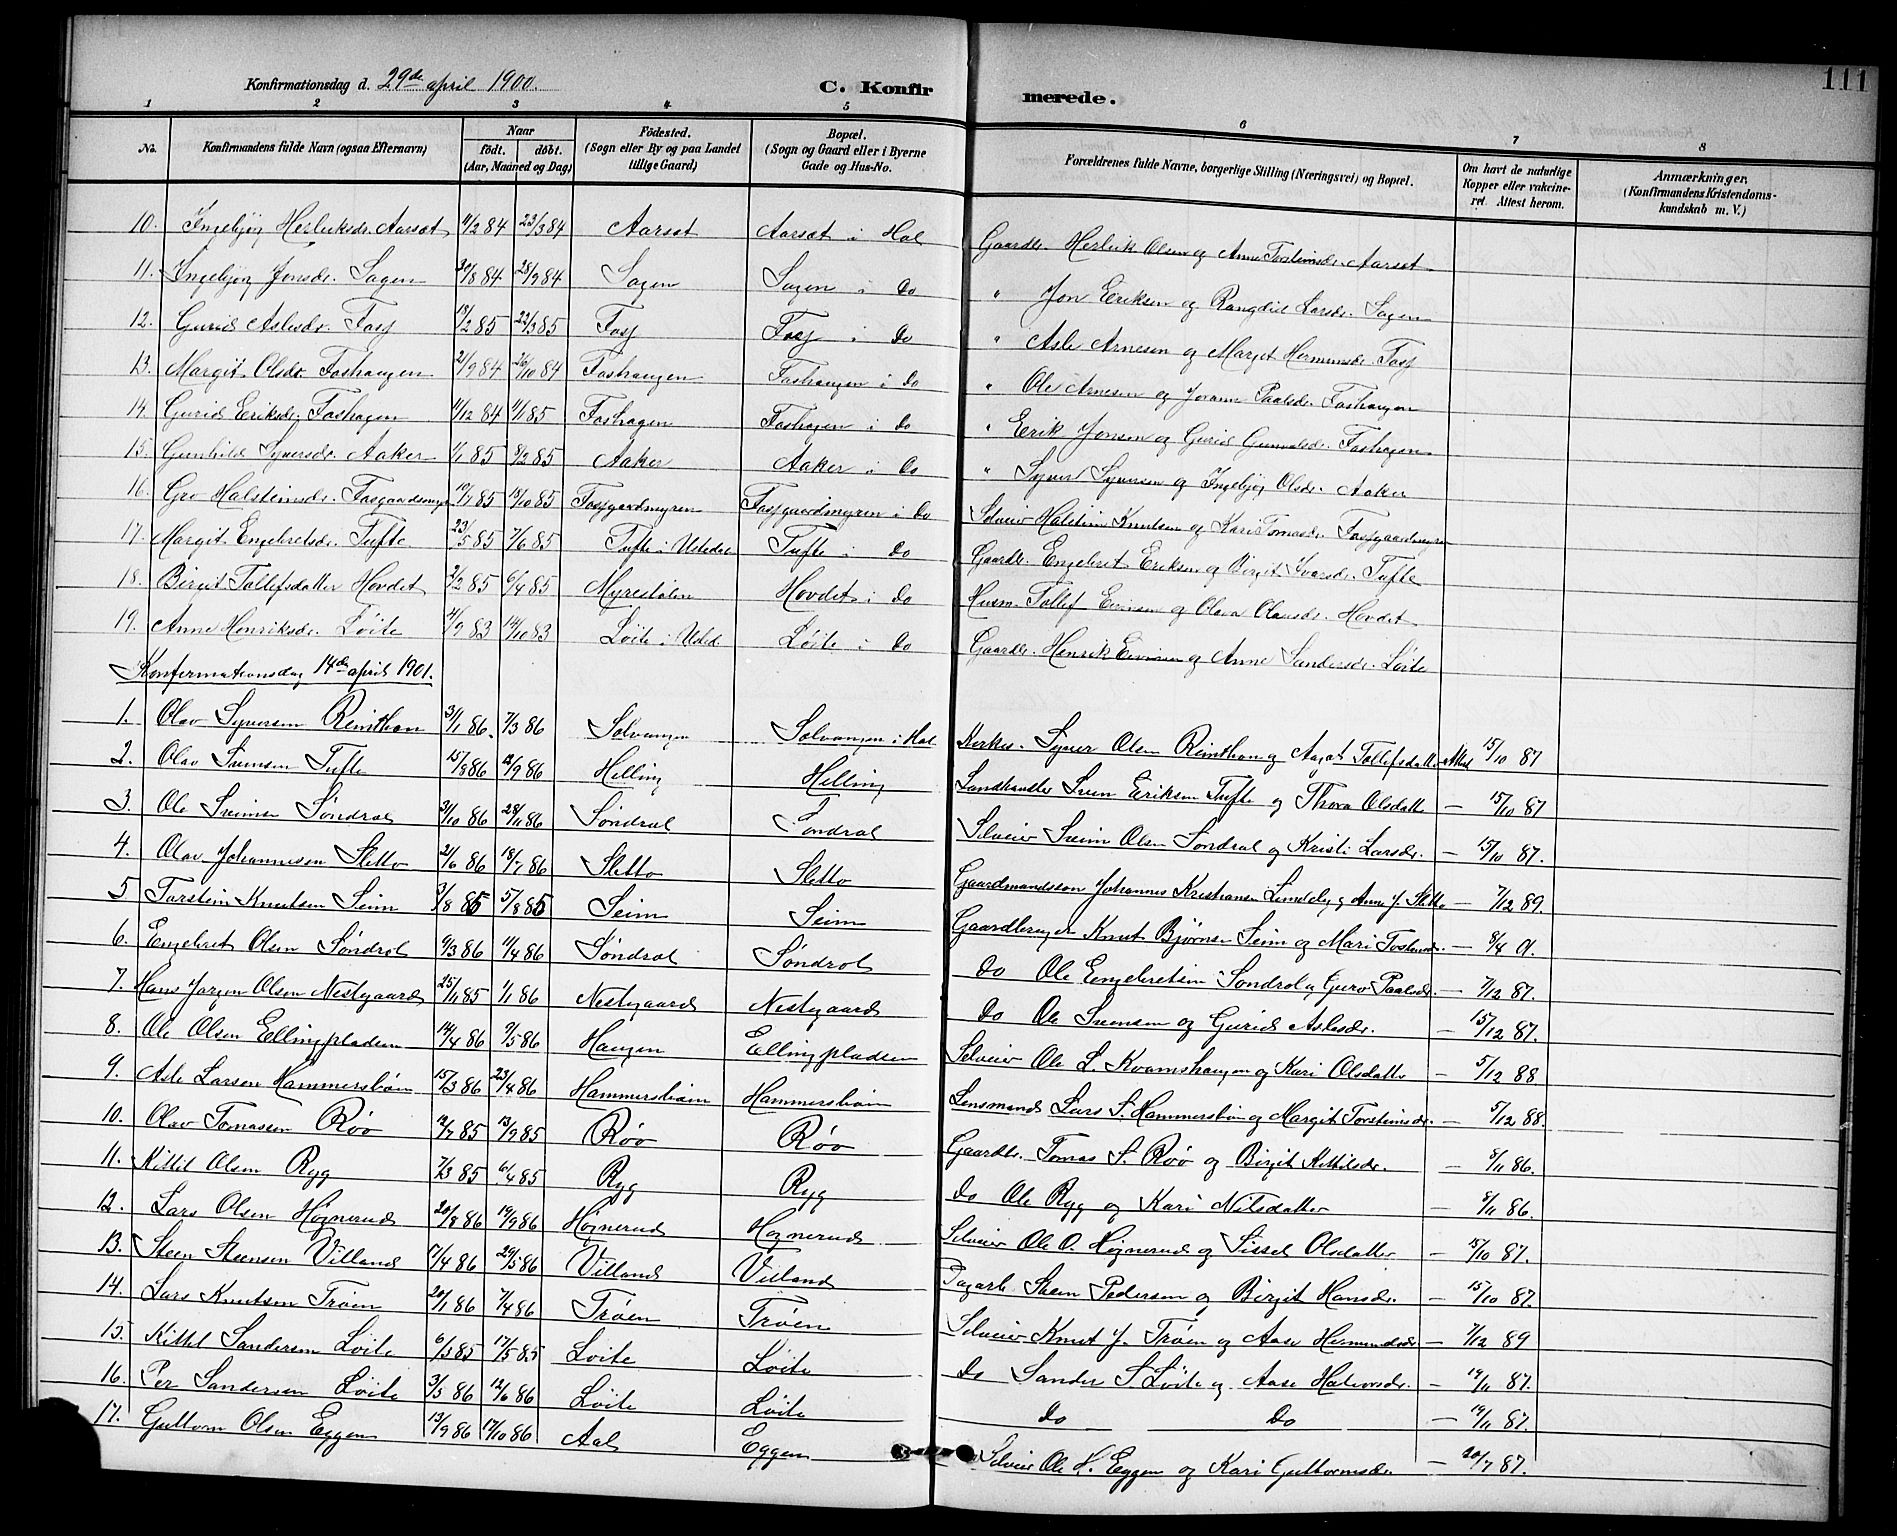 111
Konfirmationsdag d. 29de april 1900. C. Konfirmerede.
1 2 3 4 5 6 7 8
No. Konfirmandens fulde Navn (ogsaa Efternavn) Naar født. døbt. (Aar, Maaned og Dag) Fødested. (Sogn eller By og paa Landet tillige Gaard) Bopæl. (Sogn og Gaard eller i Byerne Gade og Hus-No. Forældrenes fulde Navne, borgerlige Stilling (Næringsvei) og Bopæl. Om havt de naturlige Kopper eller vakcineret. Attest herom. Anmærkninger. (Konfirmandens Kristendomskundskab m. V.)
10. Ingebjør Herleiksdr. Aarset 11/2 84 23/3 84 Aarset Aarset i Hol Gaardbr. Herleik Olsen og Anne Tosteinsdr. Aarset
11. Ingebjør Jonsdr. Sagen 30/8 84 28/9 84 Sagen Sagen i do " Jon Eriksen og Rangdid Larsdr. Sagen
12. Gurid Aslesdr. Fosj 22/3 85 Fosj Fosj i do " Asle Arnesen og Margit Hermunsdr. Fosj
13. Margit Olsdr. Foshaugen 21/9 84 26/10 84 Foshaugen Foshaugen i do " Ole Arnesen og Jorann Paalsdr. Foshaugen
14. Gurid Eriksdr. Foshagen 11/12 84 1/1 85 Foshagen Foshagen i do " Erik Jonsen og Gurid Gunvalsdr. Foshagen
15. Gunhild Syversdr. Aaker 1/1 85 8/2 85 Aaker Aaker i do " Syver Syversen og Ingebjør Olsdr. Aaker
16. Gro Halsteinsdr. Fosgaardsmyr 19/7 85 Fosgaardmyren Fosgaardmyren i do Selveier Halstein Knutsen og Kari Tomasdr. Fosgaardmyren
17. Margit Engebretsdr. Tufte 23/5 85 7/6 85 Tufte i Ustedal Tufte i do Gaardbr. Engebret Eriksen og Birgit Ivarsdr. Tufte
18. Birgit Tollefsdatter Hovdet 2/2 85 6/4 85 Myrestølen Hovdet i do Husm. Tollef Eivinsen og Olava Olausdr. Hovdet
19. Anne Henriksdr. Løite 14/10 83 Løite i Usted. Løite i do Gaardbr. Henrik Eivinsen og Anne Sandersdr. Løite
Konfirmationsdag 14de april 1901.
1. Olav Syversen Reinthon 31/1 86. 7/3 86 Solvangen Solvangen i Hol Kirkes. Syver Olsen Reinthon og Aagot Tollefsdatter Attest 15/10 87
2. Olav Svensen Tufte 15/8 86 12/9 86 Helling Helling Landhandler Sven Eriksen Tufte og Thora Olsdatter — 15/10 87
3. Ole Sveinsen Søndrol 31/10 86 28/11 86 Søndrol Søndrol Selveier Svein Olsen Søndrol og Kristi Larsdr. — 15/10 87.
4. Olav Johannesen Sletto 21/6 86 18/7 86 Sletto Sletto Gaardmandssøn Johannes Kristiansen Lindeby og Anne J. Sletto — 7/12 89.
5 Torstein Knutsen Seim 3/8 85 5/8 85 Seim Seim Gaardbruger Knut Bjørnsen Seim og Mari Tosteinsdr. — 8/4 01.
6. Engebret Olsen Søndrol 9/3 86 11/4 86 Søndrol Søndrol do Ole Engebretsen Søndrol og Guro Paalsdr. — 7/12 87.
7. Hans Jørgen Olsen Nestegaard 25/11 85 1/1 86 Nestegaard Nestegaard do Ole Svensen og Gurid Aslesdr. — 15/12 87.
8. Ole Olsen Ellingpladsen 14/4 86 9/5 86 Haugen Ellingpladsen Selveier Ole L. Kvamshaugen og Kari Olsdatter — 5/12 88
9. Asle Larsen Hammersbøen 15/3 86 23/4 86 Hammersbøen Hammersbøen Lensmand Lars S. Hammersbøen og Margit Torsteinsdr. — 5/12 88.
10. Olav Tomassen Røo 12/7 85 13/9 85 Røo Røo Gaardbr. Tomas S. Røo og Birgit Kittilsdr. — 8/11 86.
11. Kittil Olsen Ryg 7/3 85 6/4 85 Ryg Ryg do Ole Ryg og Kari Nilsdatter — 8/11 86.
12. Lars Olsen Høgnerud 20/8 86 19/9 86 Høgnerud Høgnerud Selveier Ole O. Høgnerud og Sissel Olsdatter — 15/10 87.
13. Steen Steensen Villand 17/4 86 20/5 86 Villand Villand Dagarb. Steen Pedersen og Birgit Hansdr. — 15/10 87.
14. Lars Knutsen Trøen 20/1 86 7/4 86 Trøen Trøen Selveier Knut J. Trøen og Aase Hermundsdr. — 7/12 89
15. Kittil Sandersen Løite 6/3 85 17/5 85 Løite Løite do Sander S. Løite og Aase Halvorsdr. — 19/11 87.
16. Per Sandersen Løite 3/5 86 12/6 86 Løite Løite do do — 19/11 87.
17. Guttorm Olsen Eggen 13/9 86 17/10 86 Aal Eggen Selveier Ole H. Eggen og Kari Guttormsdr. — 20/7 87.